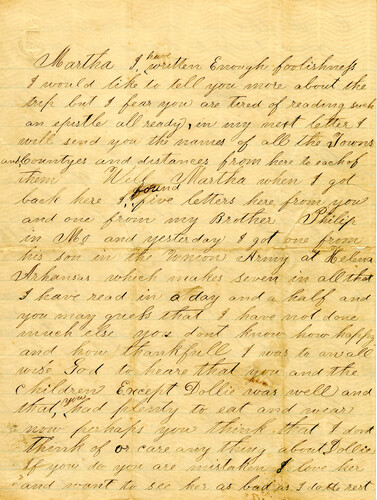 have
Martha I written Enough foolishness
I would like to tell you more about the
trip but I fear you are tired of reading such
an epistle all ready, in my next letter I
will send you the names of all the Towns
and Countyes and distances from here to each of
them Well Martha when I got
found
back here I five letters here from you
and one from my Brother Philip
in Mo and yesterday I got one from
his son in the Union Army at Helena
Arkansas which makes seven in all that
I have read in a day and a half and
you may guess that I have not done
much else you dont know how happy
and how thankfull I was to an all
wise God to hear that you and the
children Except Dollie was well and
that you had plenty to eat and wear
now perhaps you think that I dont
think of or care any thing about Dollie
If you do you are mistaken I love her
and want to see her as bad as I do the rest